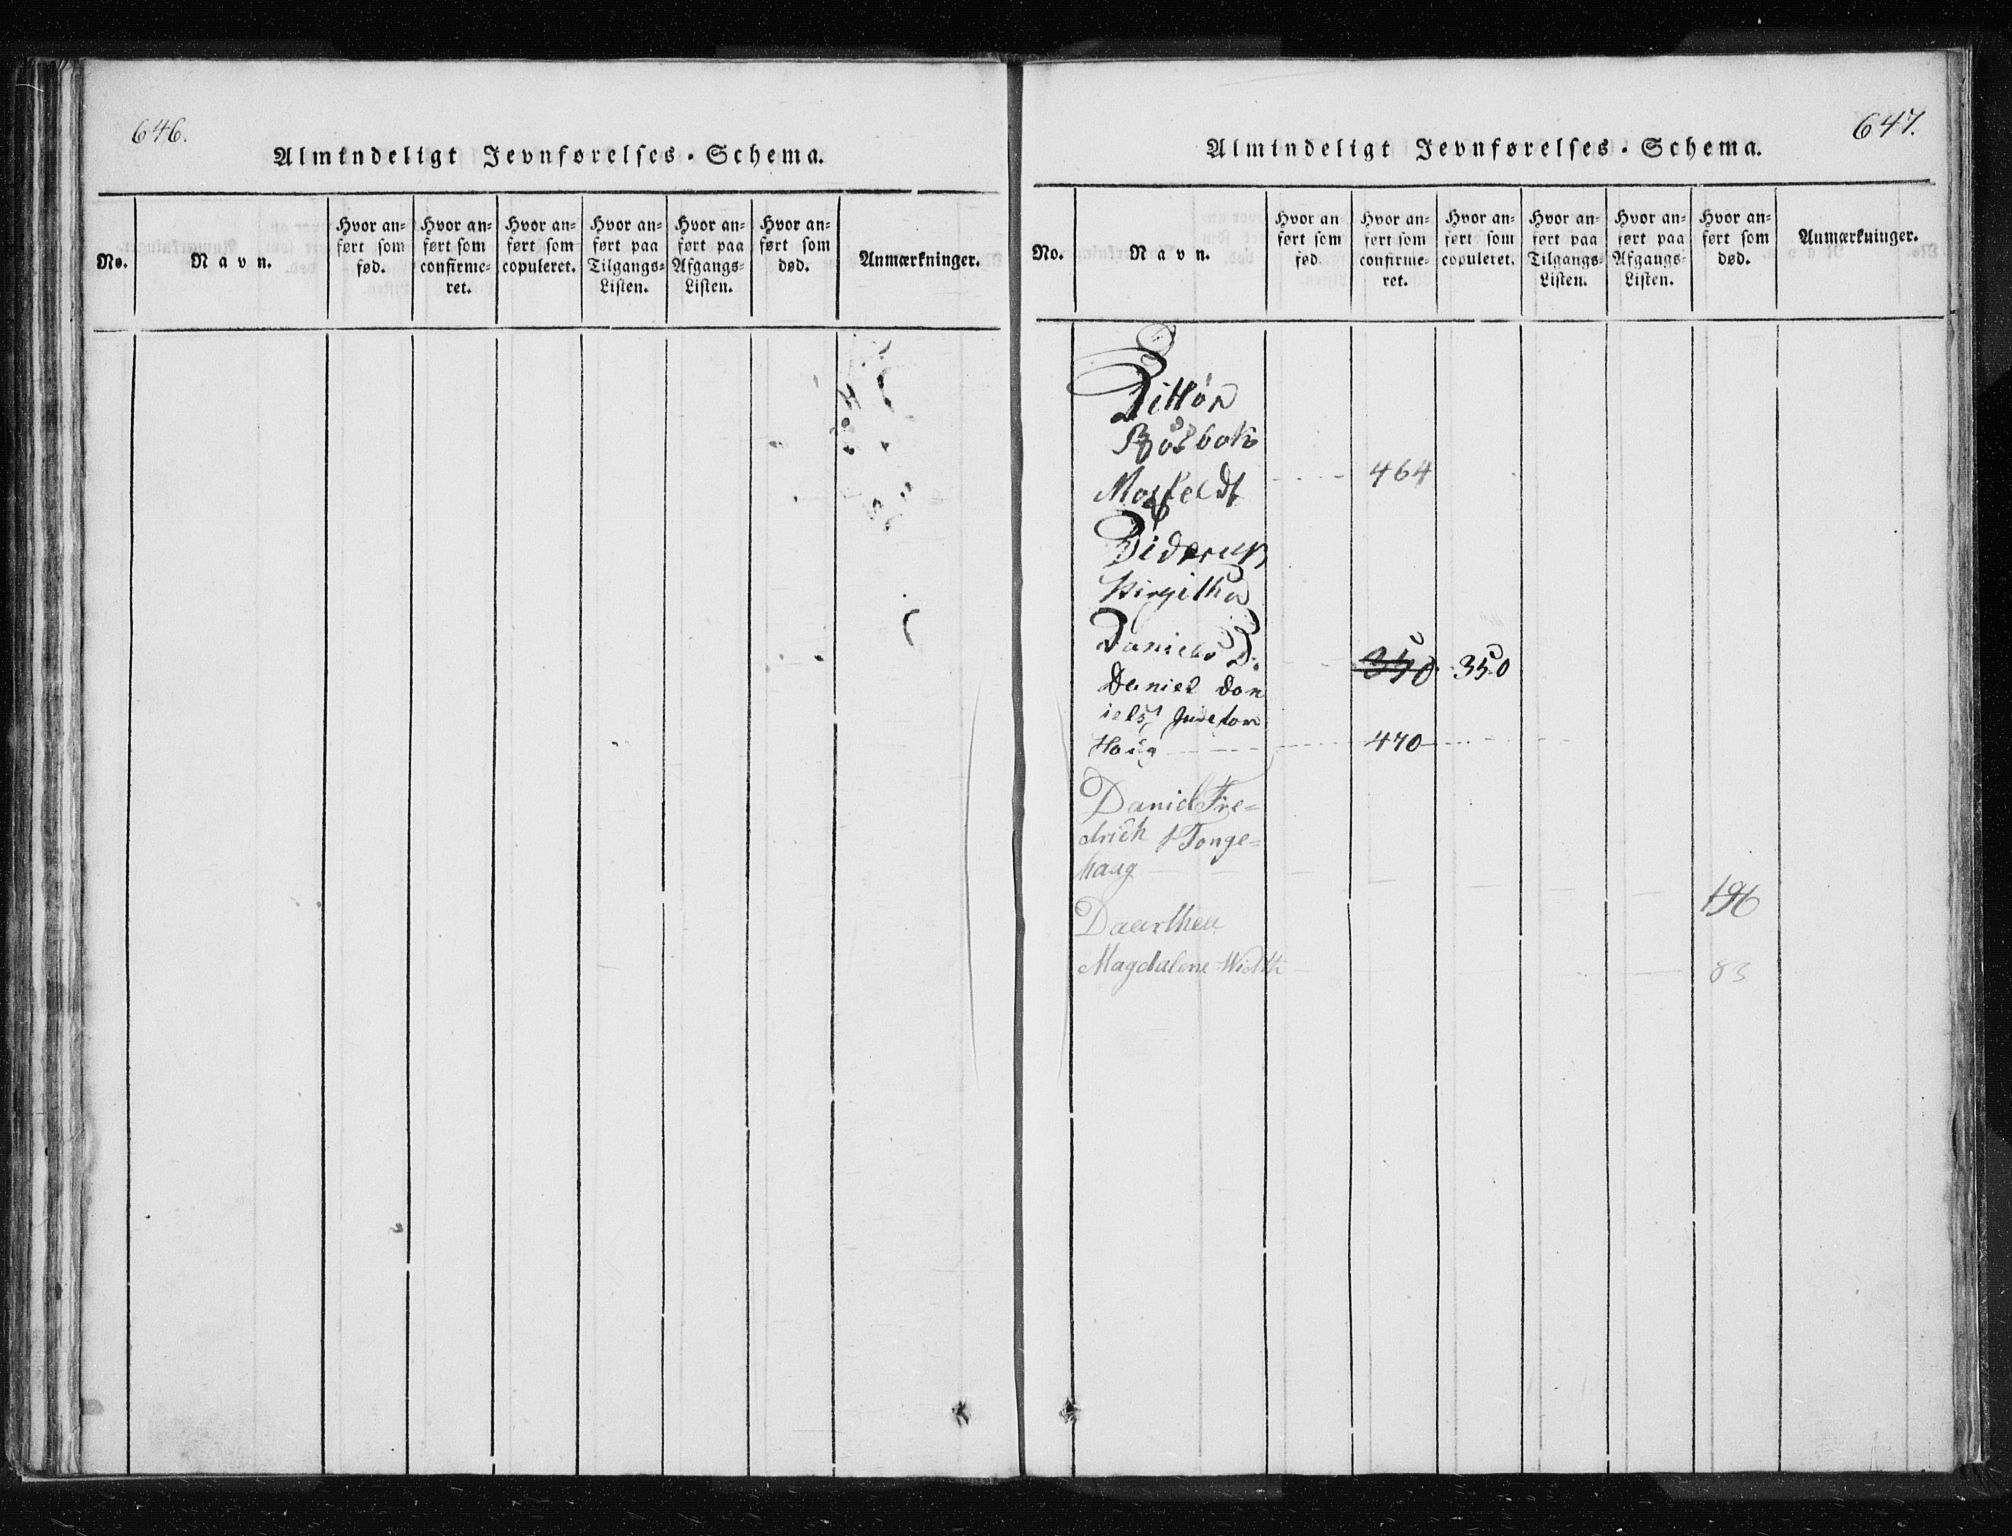 646.
Almindeligt Jevnførelses-Schema.
No.
Navn.
Hvor an-
ført som
fød.
Hvor an-
ført som
confirme-
ret.
Hvor an-
ført som
copuleret.
Hvor an-
ført paa
Tilgangs-
Listen.
Hvor an-
ført paa
Afgangs-
Listen.
Hvor an-
ført som
død.
Anmærkninger.
647.
Almindeligt Jevnførelses-Schema.
No.
Navn.
Hvor an-
ført som
fød.
Hvor an-
ført som
confirme-
ret.
Hvor an-
ført som
copuleret.
Hvor an-
ført paa
Tilgangs-
Listen.
Hvor an-
ført paa
Afgangs-
Listen.
Hvor an-
ført som
død.
Anmærkninger.
Mosfeldt 464
Birgitha
Daniels D: 350 350
Daniel Dan
iels
Haug 470
Daniel Fre-
drich Tonge-
haag 196
Daarthea
Magdalene 83